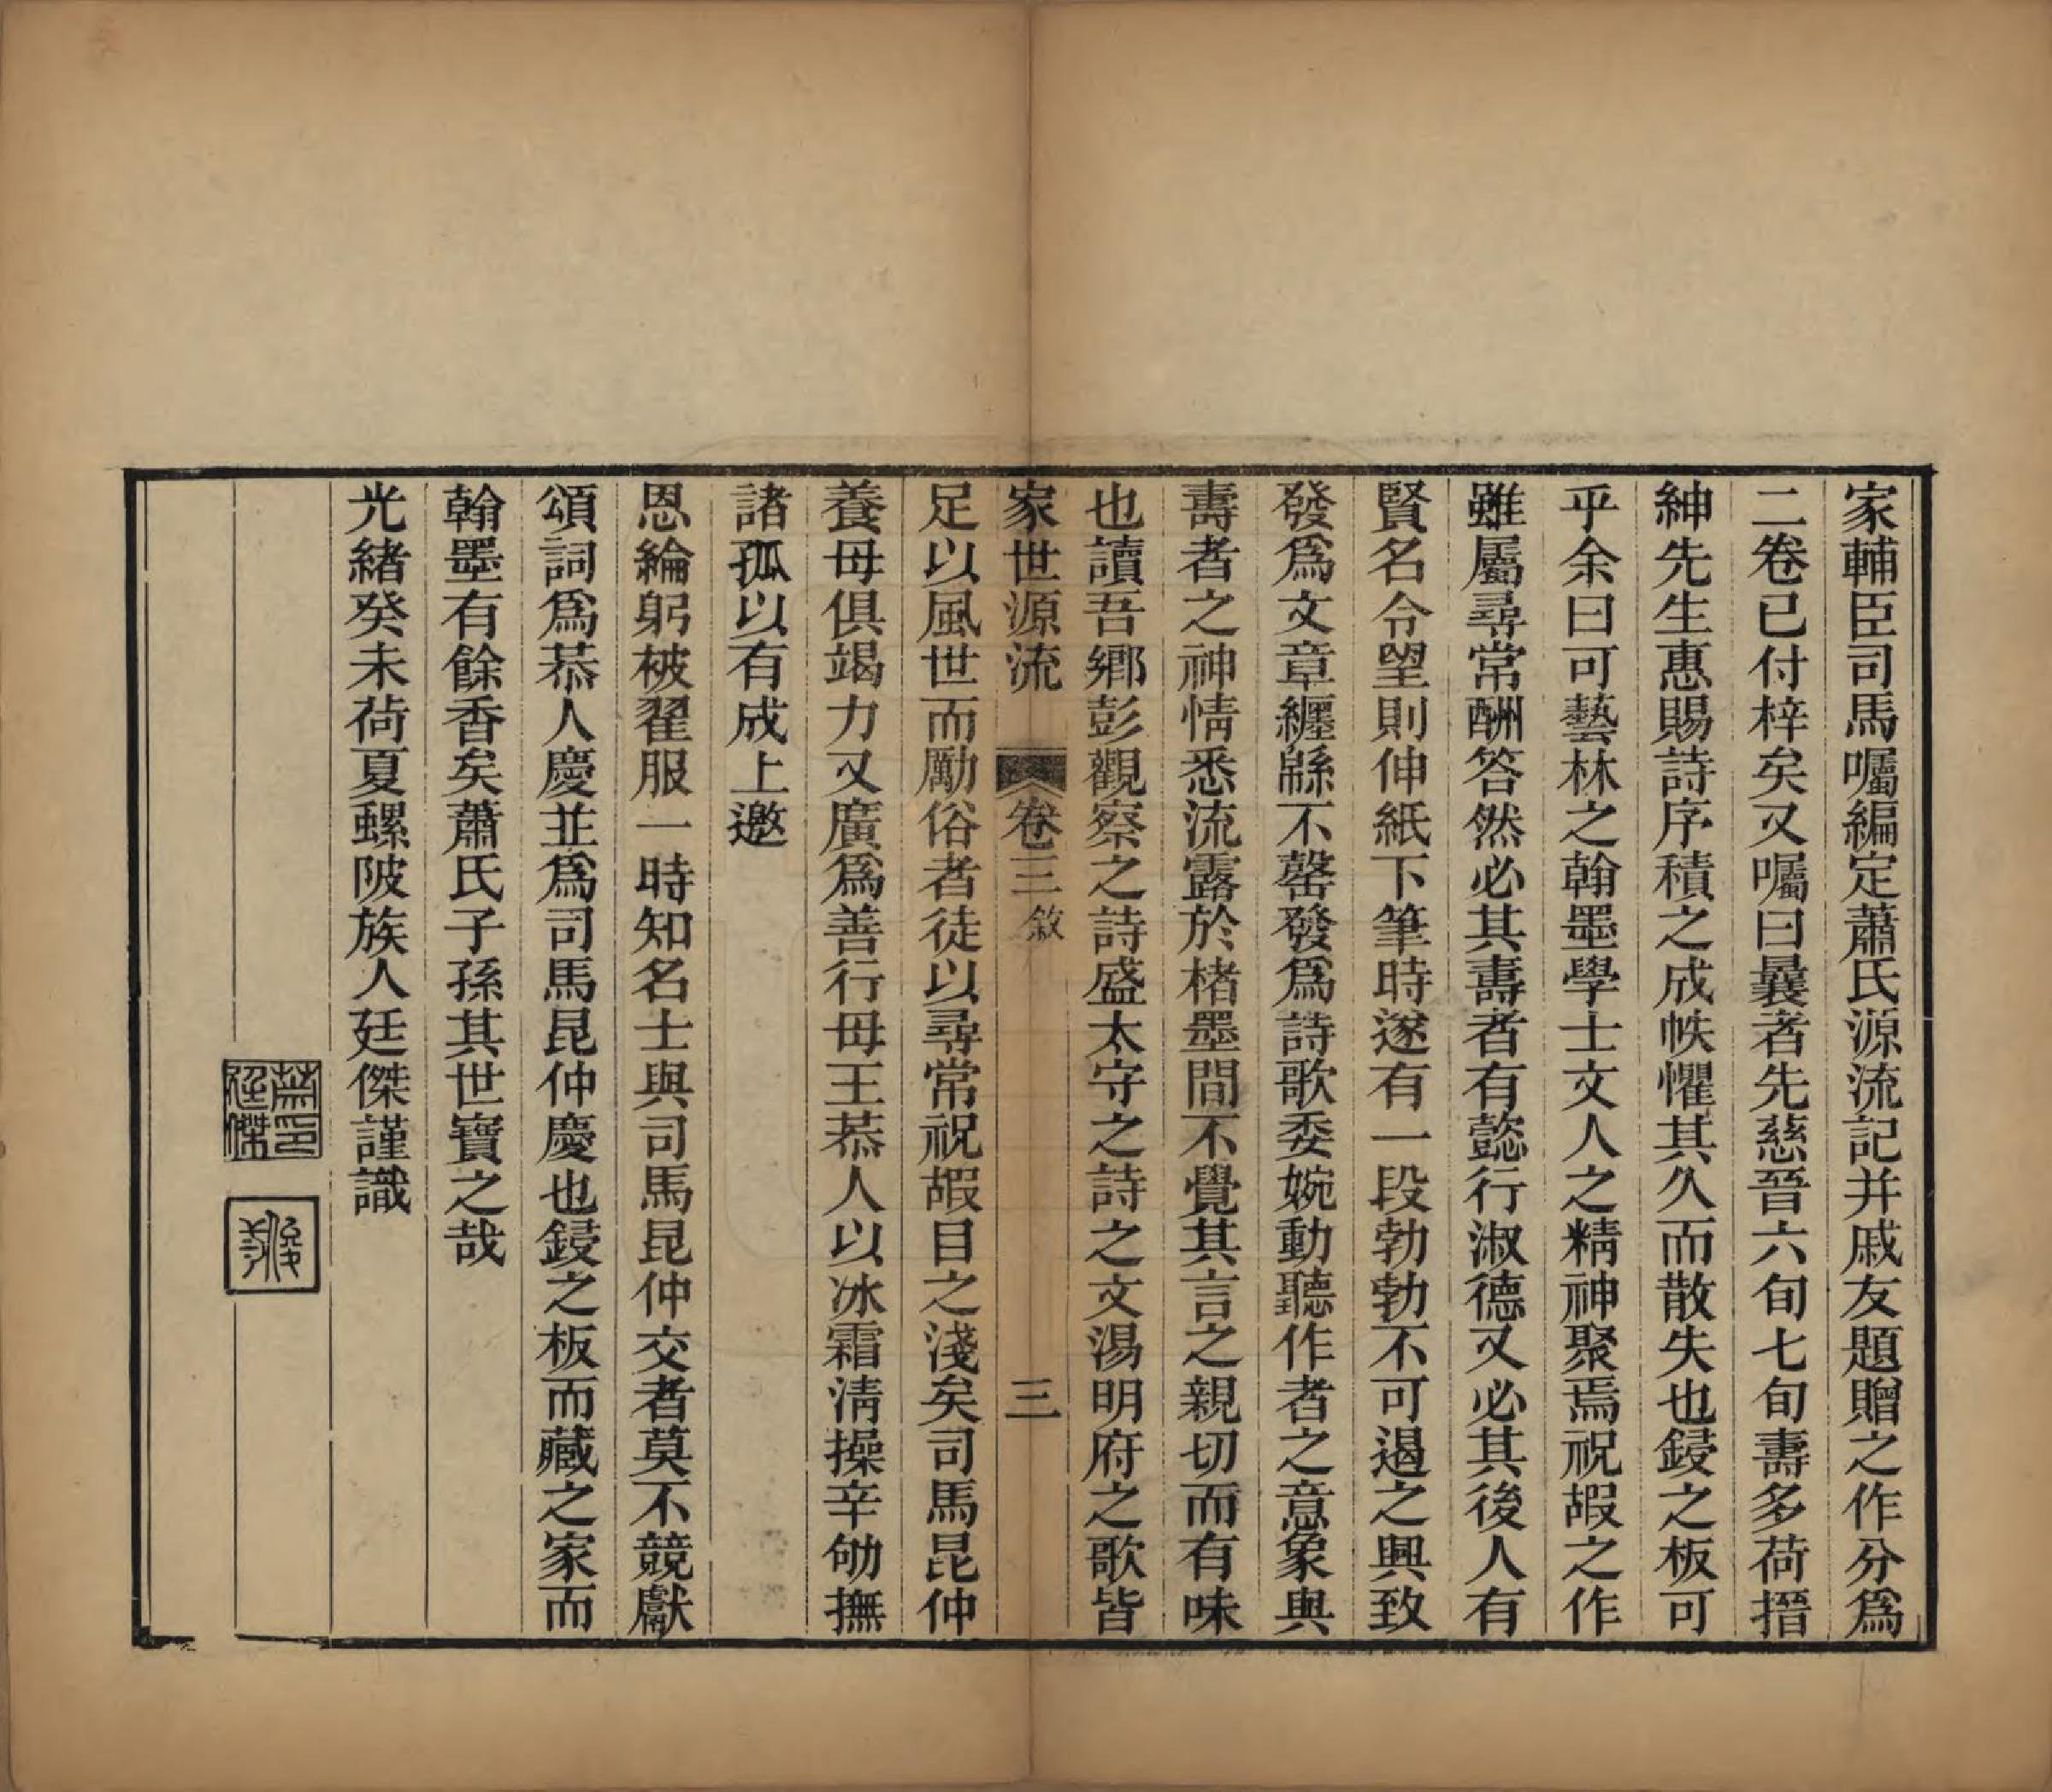 家輔臣司馬囑編定蕭氏源流記并戚友題贈之作分爲
二卷已付梓矣又囑曰曩者先慈晉六旬七旬壽多荷搢
紳先生惠賜詩序積之成帙懼其久而散失也鋟之板可
乎余曰可藝林之翰墨學士文人之精神聚焉祝嘏之作
雖屬尋常酬答然必其壽者有懿行淑德又必其後人有
賢名令望則伸紙下筆時遂有一段勃勃不可遏之興致
發爲文章纏緜不罄發爲詩歌委婉動聽作者之意象與
壽者之神情悉流露於楮墨間不覺其言之親切而有味
也讀吾鄉彭觀察之詩盛太守之詩之文湯明府之歌皆
家世源流 卷三 敘 三
足以風世而勵俗者徒以尋常祝嘏目之淺矣司馬昆仲
養母俱竭力又廣爲善行母王恭人以冰霜淸操辛劬撫
諸孤以有成上邀
恩綸躬被翟服一時知名士與司馬昆仲交者莫不競獻
頌詞爲恭人慶並爲司馬昆仲慶也鋟之板而藏之家而
翰墨有餘香矣蕭氏子孫其世寶之哉
光緒癸未荷夏螺陂族人廷傑謹識